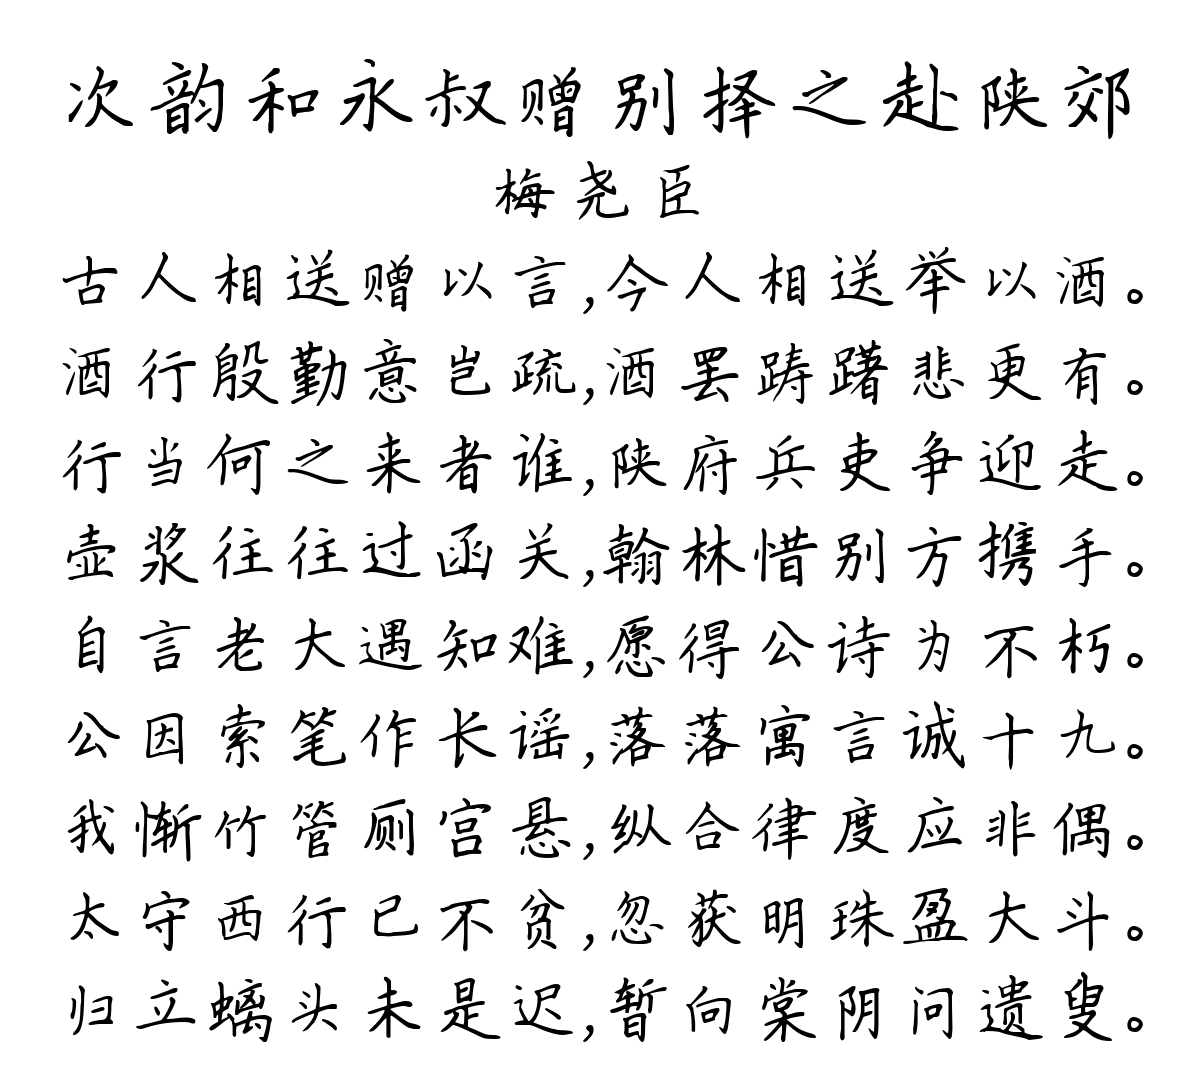 次韵和永叔赠别择之赴陕郊
梅尧臣
古人相送赠以言,今人相送举以酒。
酒行殷勤意岂疏,酒罢踌躇悲更有。
行当何之来者谁,陕府兵吏争迎走。
壶浆往往过函关,翰林惜别方携手。
自言老大遇知难,愿得公诗为不朽。
公因索笔作长谣,落落寓言诚十九。
我惭竹管厕宫悬,纵合律度应非偶。
太守西行已不贫,忽获明珠盈大斗。
归立螭头未是迟,暂向棠阴问遗叟。